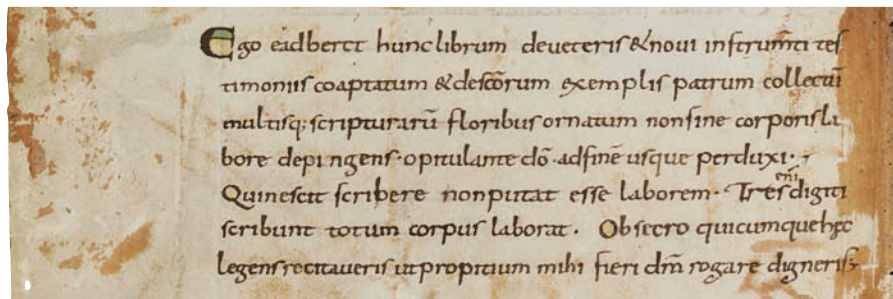 Ego eadberct hunc librum de veteris & novi instrum̄ti tes
timoniis coaptatum & de sc̄orum exemplis patrum collectū
multisq; scripturarū floribus ornatum non sine corporis la
bore depingens · opitulante dō · ad finē usque perduxi ·
Qui nescit scribere non putat esse laborem · Tres eni digiti
scribunt totum corpus laborat · Obsecro quicumque hęc
legens recitaveris ut propitium mihi fieri dm̄ rogare digneris ;